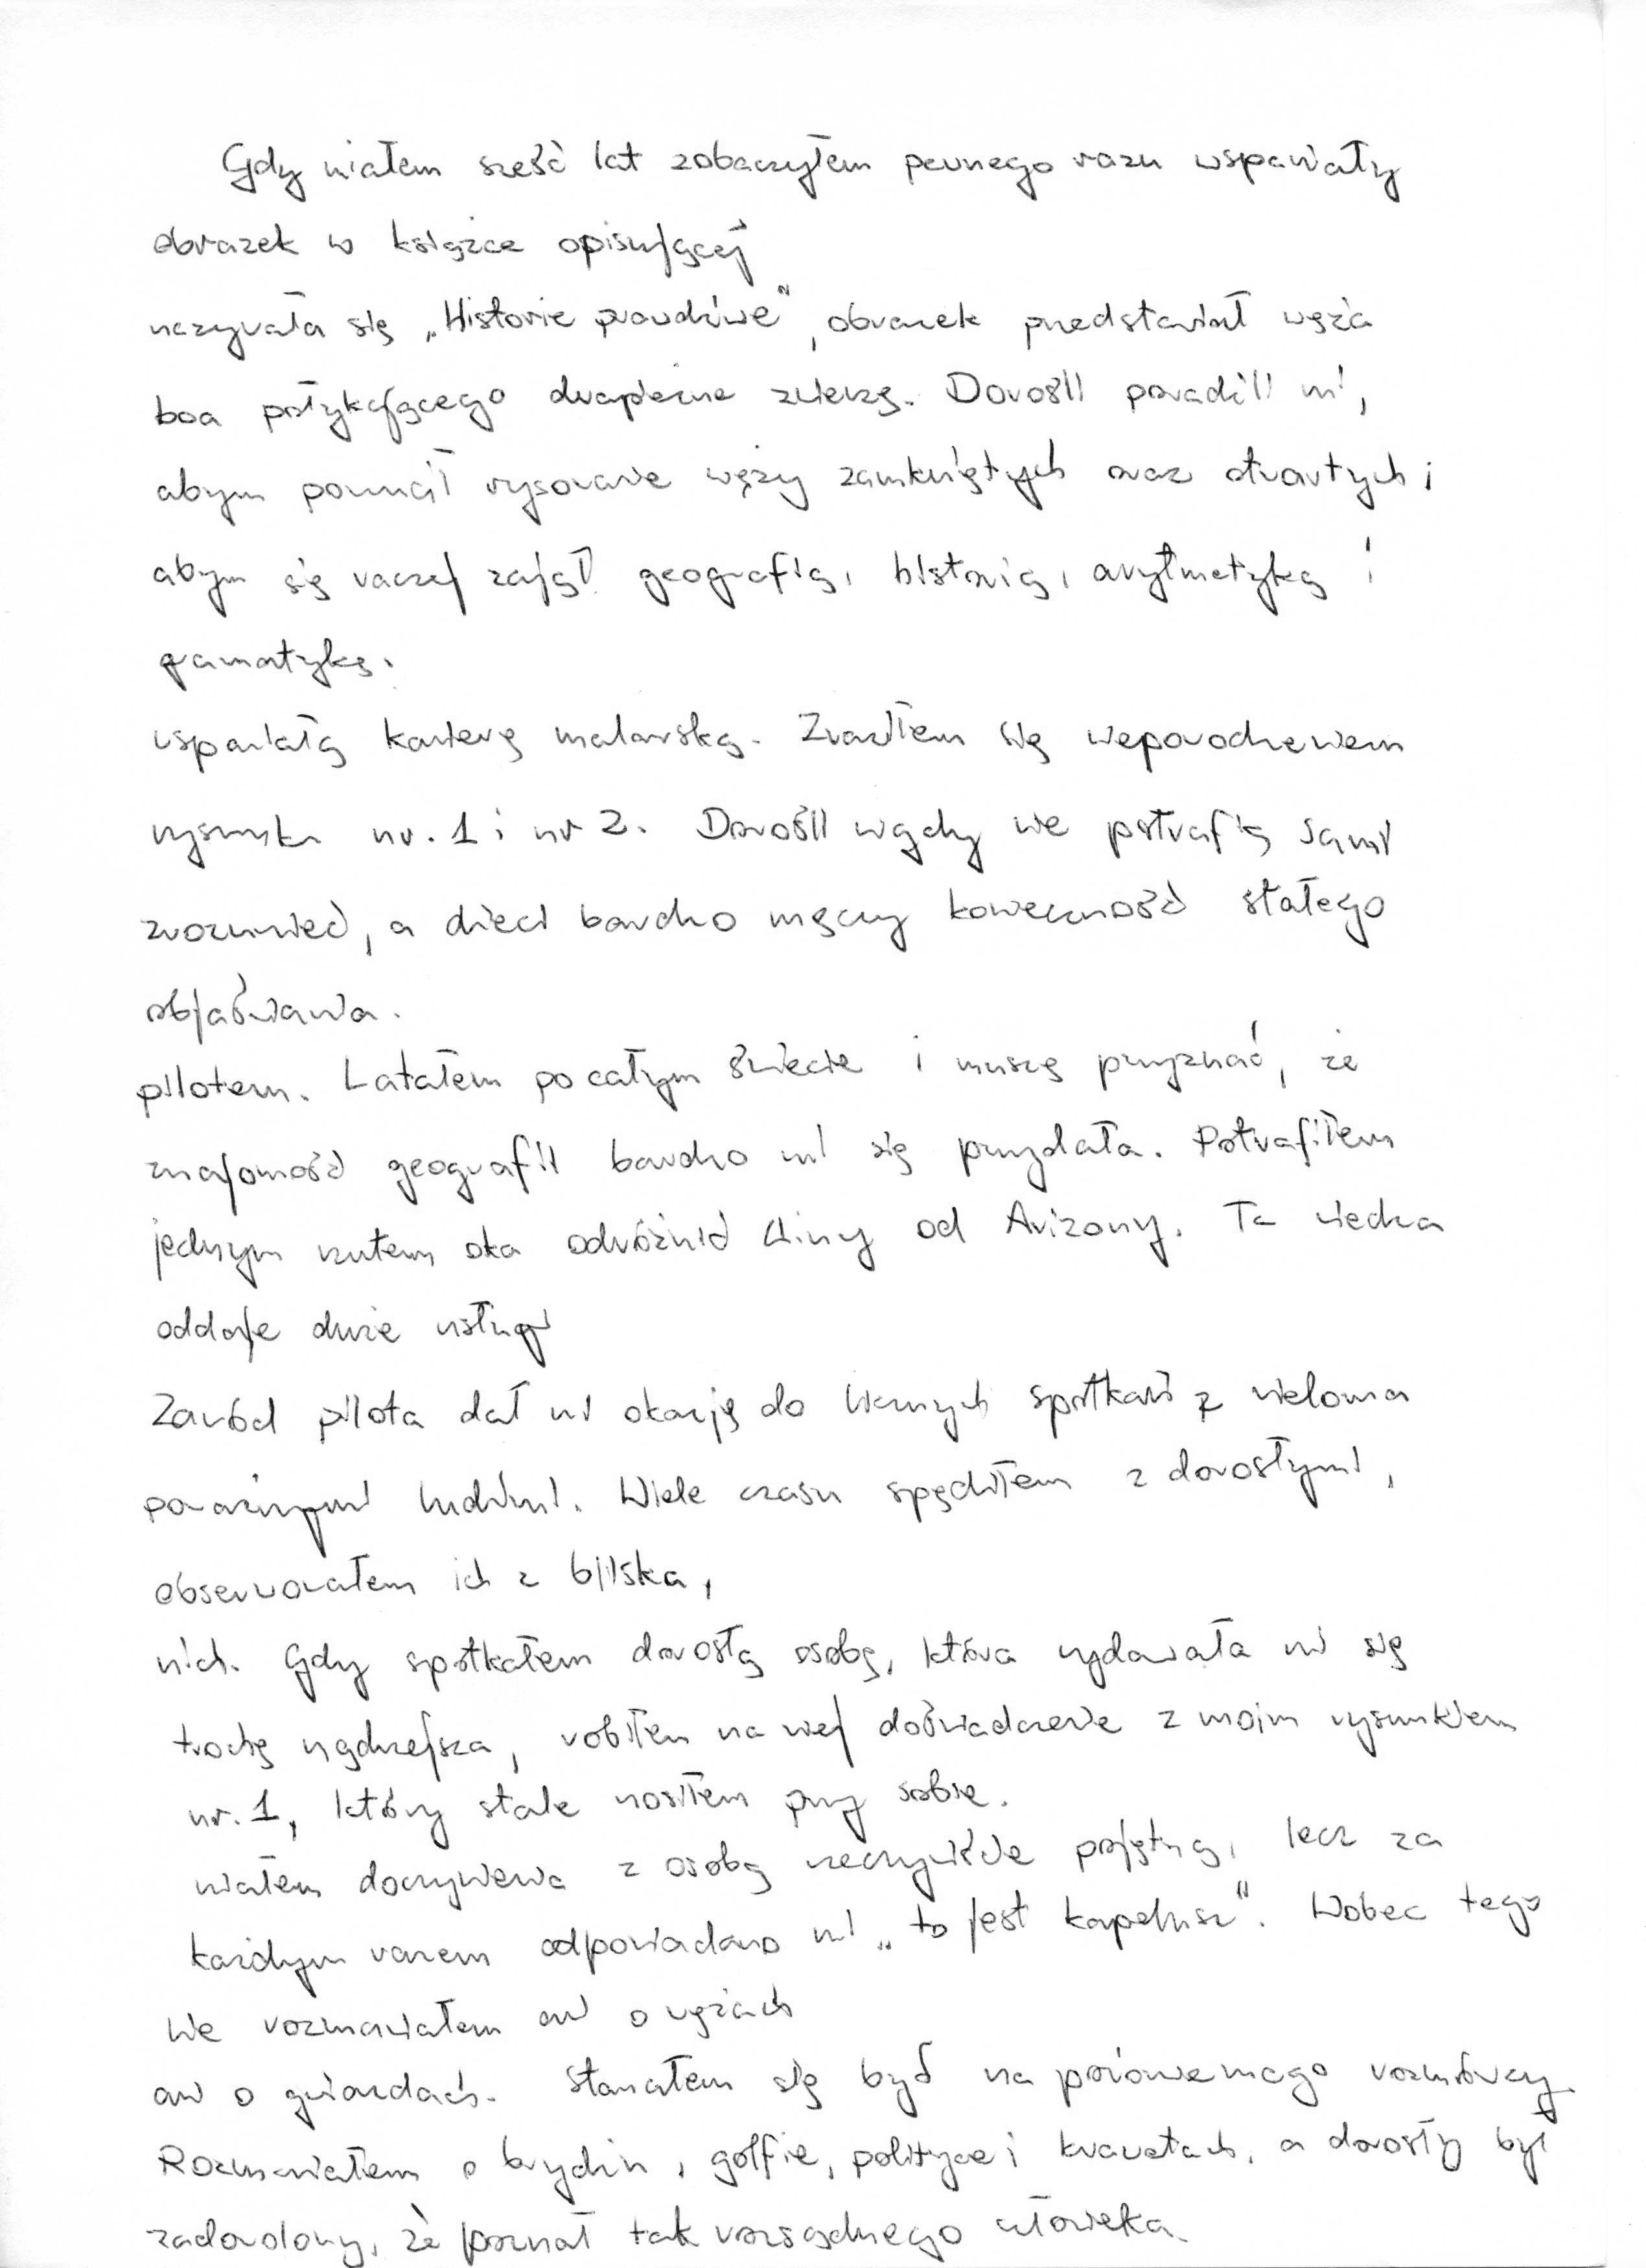 Gdy miałem sześć lat zobaczyłem pewnego razu wspaniały
obrazek w książce opisującej
nazywała się „Historie prawdziwe", obrazek przedstawiał węża
boa połykającego drapieżne zwierzę. Dorośli poradzili mi,
abym porzucił rysowanie węży zamkniętych oraz otwartych i
abym się raczej zajął geografią, historią, arytmetyką i
gramatyką.
wspaniałą karierę malarską. Zraziłem się niepowodzeniem
rysunku nr. 1 i nr 2. Dorośli nigdy nie potrafią sami
zrozumieć, a dzieci bardzo męczy konieczność stałego
objaśniania.
pilotem. Latałem po całym świecie i muszę przyznać, że
znajomość geografii bardzo mi się przydała. Potrafiłem
jednym rzutem oka odróżnić Chiny od Arizony. Ta wiedza
oddaje duże usługi
Zawód pilota dał mi okazję do licznych spotkań z wieloma
poważnymi ludźmi. Wiele czasu spędziłem z dorosłymi,
obserwowałem ich z bliska,
nich. Gdy spotkałem dorosłą osobę, która wydawała mi się
trochę mądrzejsza, robiłem na niej doświadczenie z moim rysunkiem
nr. 1, który stale nosiłem przy sobie.
miałem do czynienia z osobą rzeczywiście pojętną, lecz za
każdym razem odpowiadano mi „to jest kapelusz". Wobec tego
nie rozmawiałem ani o wężach
ani o gwiazdach. Starałem się być na poziomie mego rozmówcy.
Rozmawiałem o brydżu, golfie, polityce i krawatach, a dorosły był
zadowolony, że poznał tak rozsądnego człowieka.